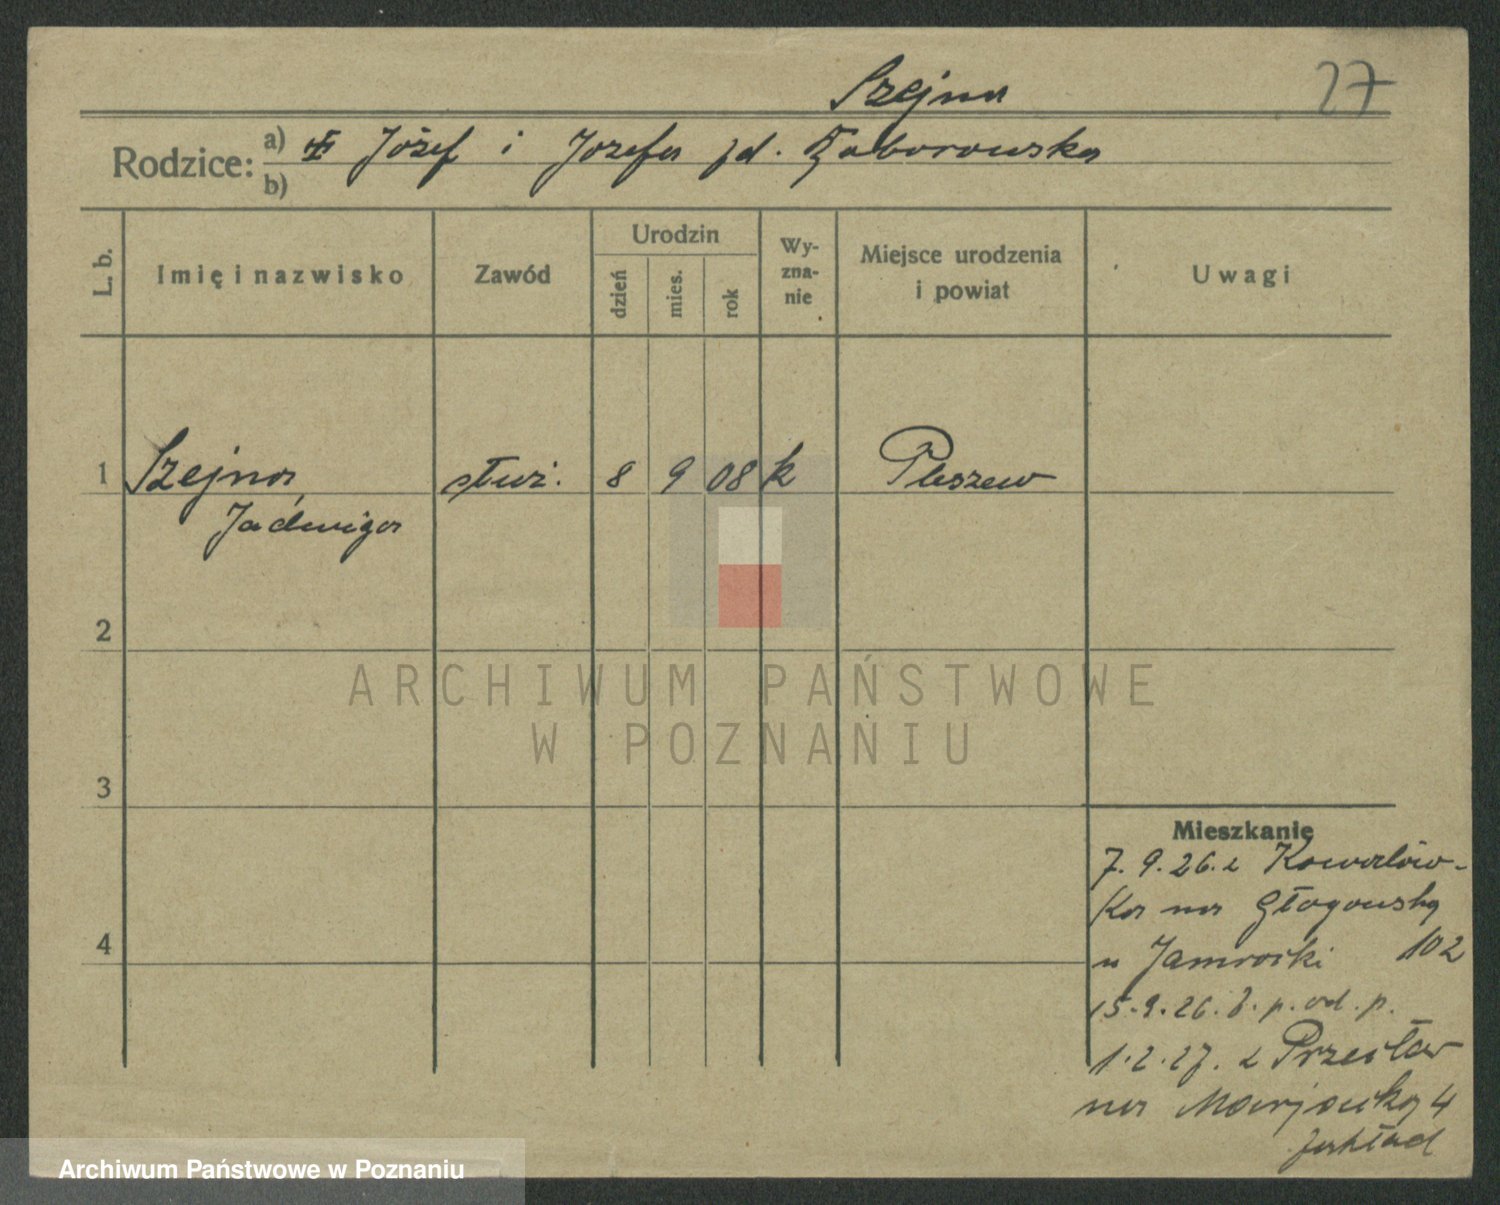 Szejna
27
Rodzice: a) Józef i Jozefa zd. Zaborowska
b)
L. b. Imię i nazwisko Zawód Urodzin dzień mies. rok Wy-zna-nie Miejsce urodzenia i powiat Uwagi
1 Szejna służ. 8 9 08 k Pleszew
Jadwiga
2
ARCHIWUM PAŃSTWOWE
W POZNANIU
3
Mieszkanie
7. 9. 26. z Kowalów-
ka na Głogowską
u Jamroski 102
4
15. 9. 26. p. od. p.
1. 2. 27. z Przecław
na Marjacką 4
zakład
Archiwum Państwowe w Poznaniu